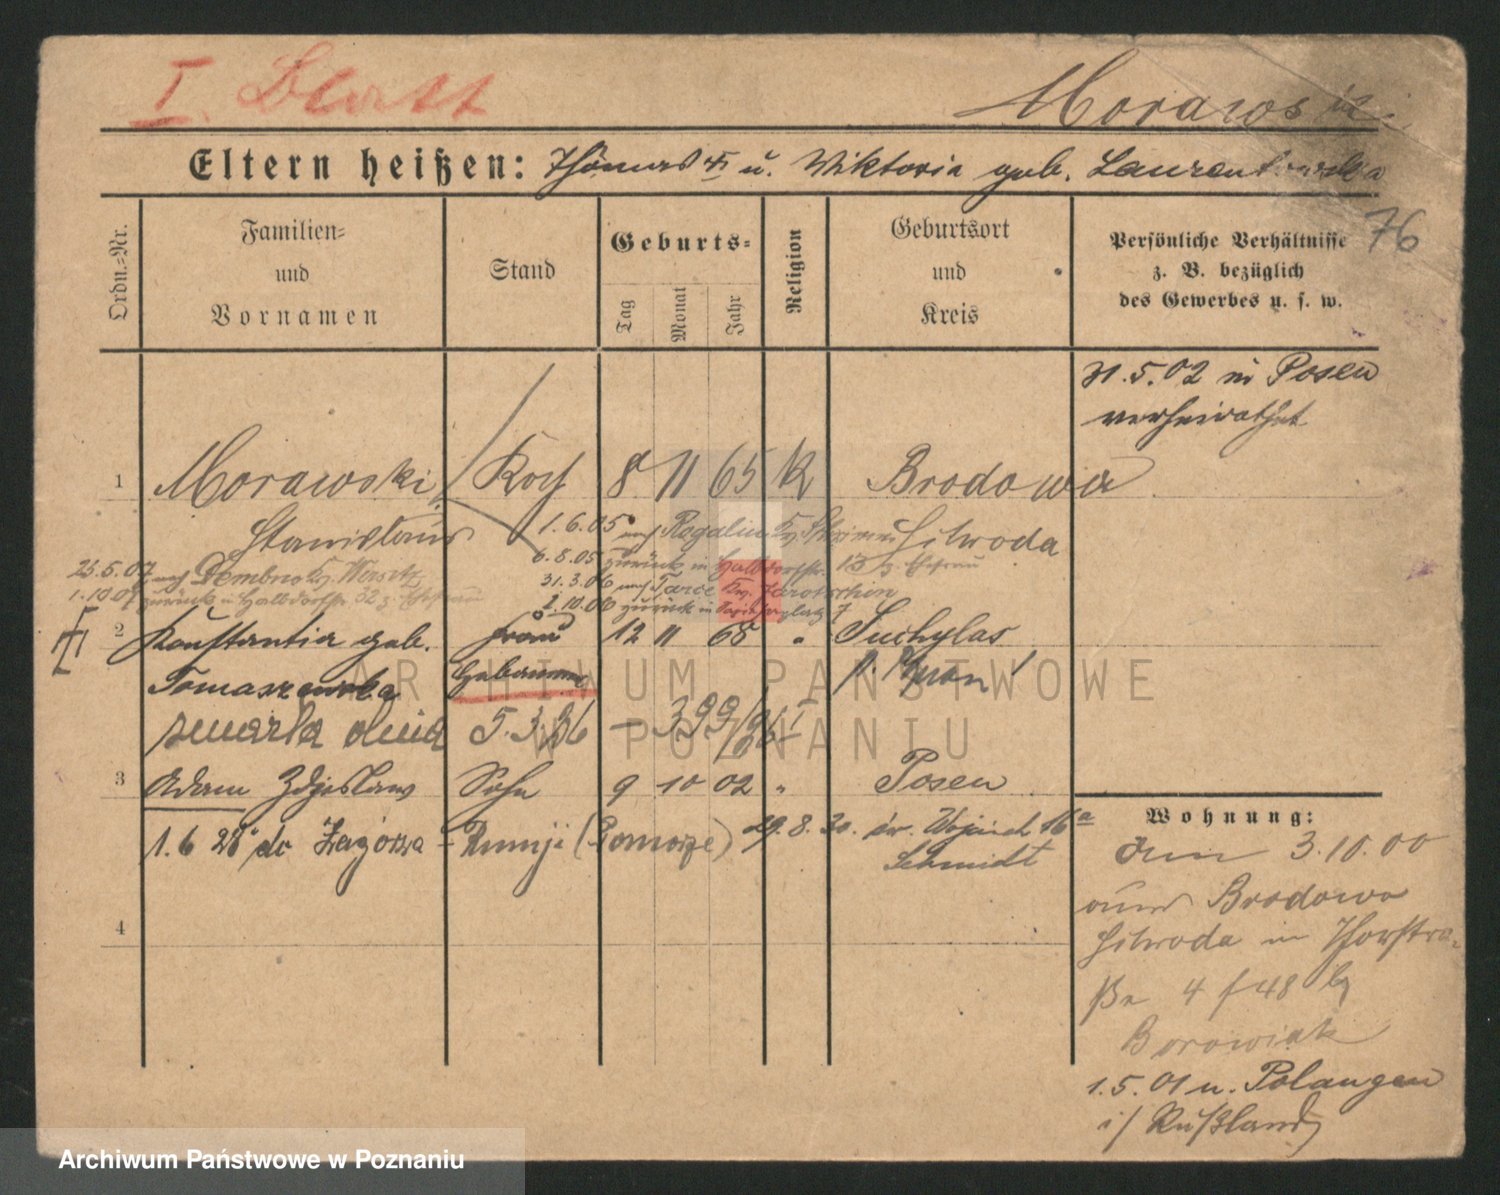 I. Blatt
Morawski
Eltern heißen: Thomas u. Wiktoria geb. Laurentowska
76
Ordn.-Nr.
Familien- und Vornamen
Stand
Geburts-
Tag
Monat
Jahr
Religion
Geburtsort und Kreis
Persönliche Verhältnisse z. B. bezüglich des Gewerbes u. s. w.
31.5.02 in Posen
verheirathet
1 Morawski Koch 8 11 65 K Brodowo
Stanislaus Schroda
1.6.05 nach Rogalin Kr. Schrimm
6.8.05 zurück in Halbdorfstr. 13 z. Ehefrau
25.5.07 nach Dembno Kr.
31.3.06 nach Tarce Kr. Jarotschin
1.10.07 zurück in Halbdorfstr. 32 z. Ehefrau
2.10.06 zurück in 7
2 Konstantia geb. Frau 12 11 68 " Suchylas
Tomaszewska Hebamme
zmarła dnia 5.3.26 – 399/26 I
3 Adam Zdzislaw Sohn 9 10 02 " Posen
1.6 28 do Zagórza - Rumji (Pomorze) 29.8.30. św. Wojciech 16a
Schmidt
4
Wohnung:
3.10.00
aus Brodowo
Schroda in Thorstra-
ße 4 f 48 b/
Borowiak
1.5.01 n. Polangen
i/ Rußland
ARCHIWUM PAŃSTWOWE
W POZNANIU
Archiwum Państwowe w Poznaniu